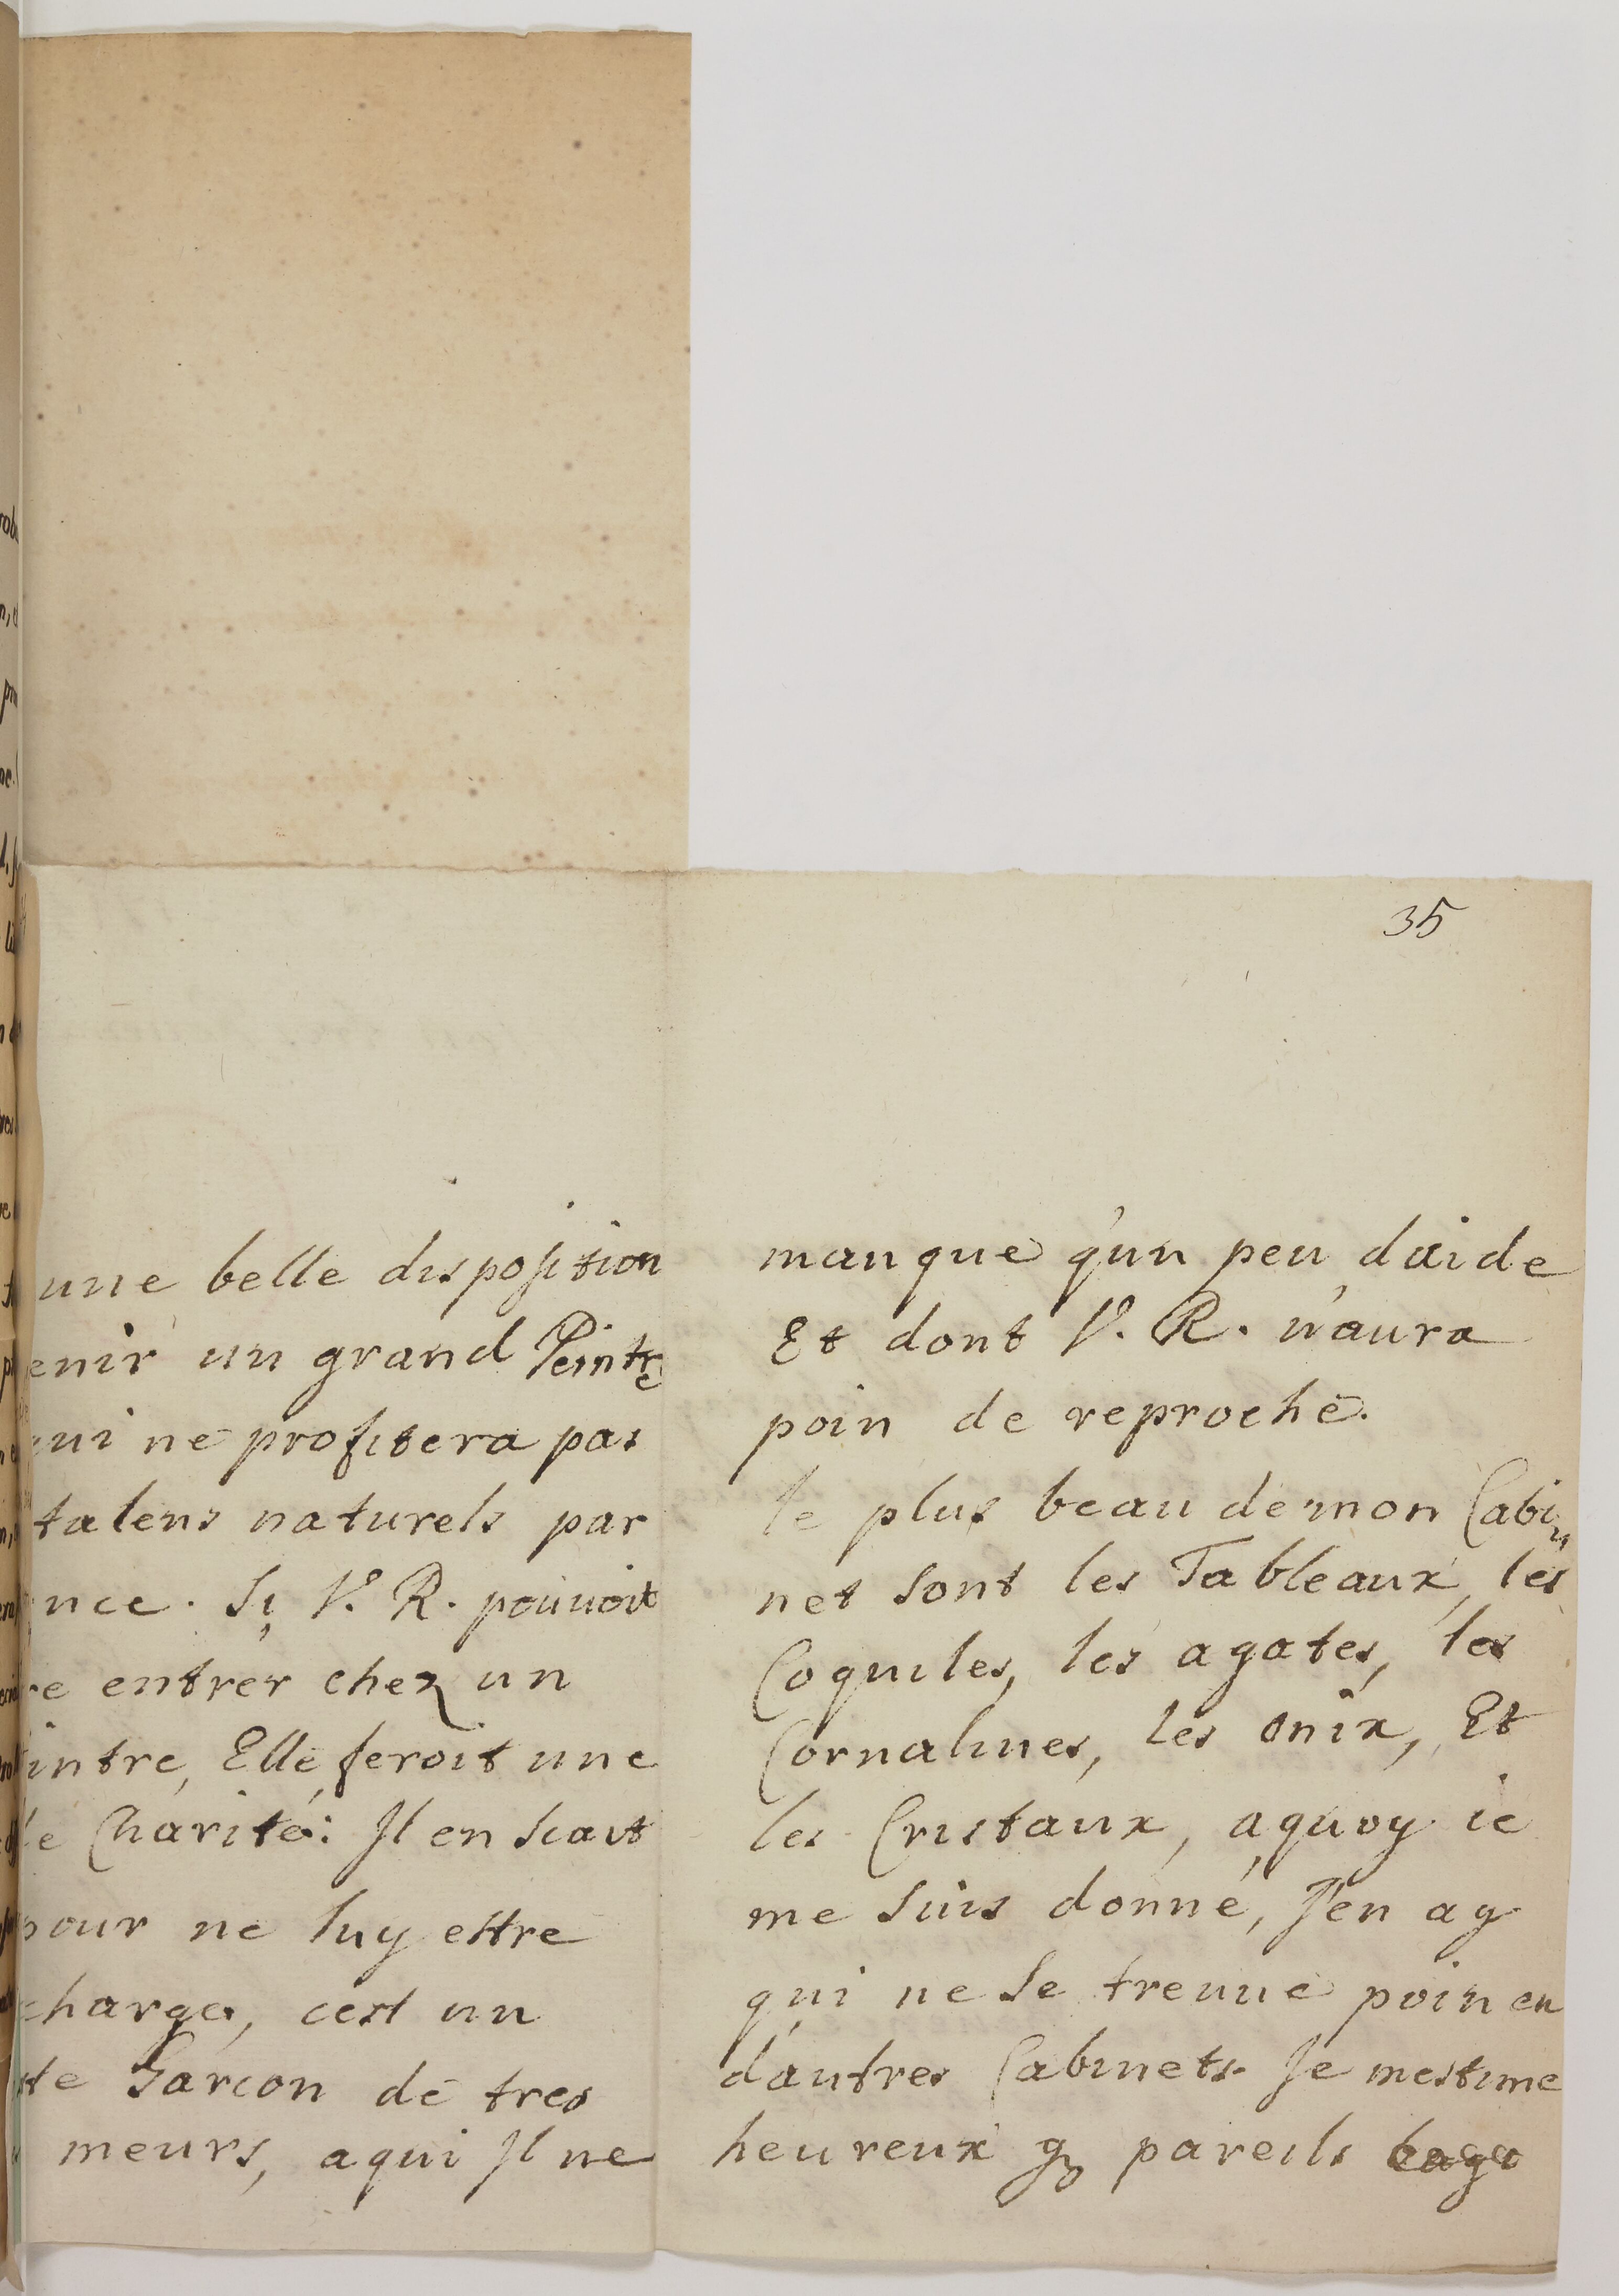 une belle disposition
enir un grand Peintre
ui ne profitera pas
talens naturels par
nce. Si V. R. pouuoit
re entrer chez un
intre, Elle feroit une
le Charité: Il en scait
pour ne luy estre
charge, cest un
te Garcon de tres
meurs, aqui Il ne
35
manque qu'un peu daide
Et dont V. R. n'aura
poin de reproche.
le plus beau de mon Cabin
net sont les Tableaux, les
Coquiles, les agates, les
Cornalines, les onix, Et
les Cristaux, aquoy ie
me suis donné, J'en ay
qui ne se treuue poin en
d'autres Cabinets. Je mestime
heureux q pareils